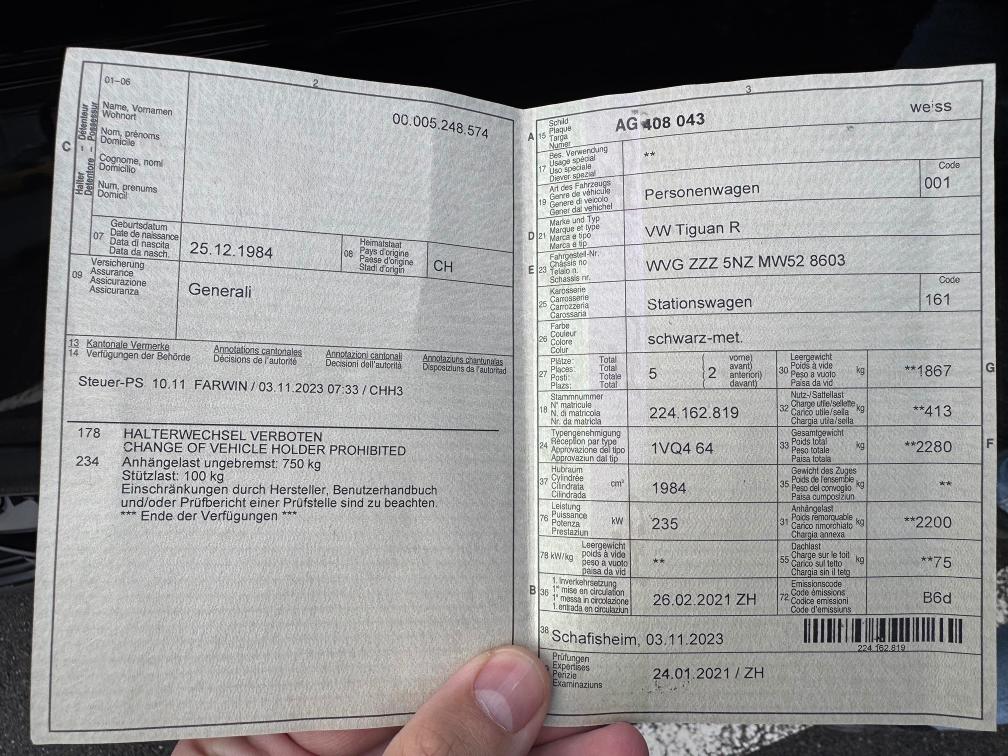 2
01–06
Name, Vornamen
Wohnort
Nom, prénoms
Domicile
Cognome, nomi
Domicilio
Num, prenums
Domicil
C
Halter – Détenteur
Detentore – Possessur
00.005.248.574
07
Geburtsdatum
Date de naissance
Data di nascita
Data da nasch.
25.12.1984
08
Heimatstaat
Pays d'origine
Paese d'origine
Stadi d'origin
CH
09
Versicherung
Assurance
Assicurazione
Assicuranza
Generali
13 Kantonale Vermerke
14 Verfügungen der Behörde
Annotations cantonales
Décisions de l'autorité
Annotazioni cantonali
Decisioni dell'autorità
Annotaziuns chantunalas
Disposiziuns da l'autoritad
Steuer-PS 10.11 FARWIN / 03.11.2023 07:33 / CHH3
178 HALTERWECHSEL VERBOTEN
CHANGE OF VEHICLE HOLDER PROHIBITED
234 Anhängelast ungebremst: 750 kg
Stützlast: 100 kg
Einschränkungen durch Hersteller, Benutzerhandbuch
und/oder Prüfbericht einer Prüfstelle sind zu beachten.
*** Ende der Verfügungen ***
3
A 15
Schild
Plaque
Targa
Numer
AG 408 043
weiss
17
Bes. Verwendung
Usage spécial
Uso speciale
Diever spezial
**
19
Art des Fahrzeugs
Genre de véhicule
Genere di veicolo
Gener dal vehichel
Personenwagen
Code
001
D 21
Marke und Typ
Marque et type
Marca e tipo
Marca e tip
VW Tiguan R
E 23
Fahrgestell-Nr.
Châssis no
Telaio n.
Schassis nr.
WVG ZZZ 5NZ MW52 8603
25
Karosserie
Carrosserie
Carrozzeria
Carossaria
Stationswagen
Code
161
26
Farbe
Couleur
Colore
Colur
schwarz-met.
27
Plätze: Total
Places: Total
Posti: Totale
Plazs: Total
5
2
vorne)
avant)
anteriori)
davant)
30
Leergewicht
Poids à vide
Peso a vuoto
Paisa da vid
kg
**1867
G
18
Stammnummer
N° matricule
N. di matricola
Nr. da matricla
224.162.819
32
Nutz-/Sattellast
Charge utile/sellette
Carico utile/sella
Chargia utila/sella
kg
**413
24
Typengenehmigung
Réception par type
Approvazione del tipo
Approvaziun dal tip
1VQ4 64
33
Gesamtgewicht
Poids total
Peso totale
Paisa totala
kg
**2280
F
37
Hubraum
Cylindrée
Cilindrata
Cilindrada
cm³
1984
35
Gewicht des Zuges
Poids de l'ensemble
Peso del convoglio
Paisa cumposiziun
kg
**
76
Leistung
Puissance
Potenza
Prestaziun
kW
235
31
Anhängelast
Poids remorquable
Carico rimorchiato
Chargia annexa
kg
**2200
78 kW/kg
Leergewicht
poids à vide
peso a vuoto
paisa da vid
**
55
Dachlast
Charge sur le toit
Carico sul tetto
Chargia sin il tetg
kg
**75
B 36
1. Inverkehrsetzung
1re mise en circulation
1a messa in circolazione
1. entrada en circulaziun
26.02.2021 ZH
72
Emissionscode
Code émissions
Codice emissioni
Code d'emissiuns
B6d
38
Schafisheim, 03.11.2023
224.162.819
Prüfungen
Expertises
Perizie
Examinaziuns
24.01.2021 / ZH